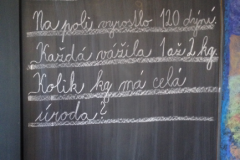 Na poli vyrostlo 120 dýní.
Každá vážila 1 až 2 kg.
Kolik kg má celá
úroda?